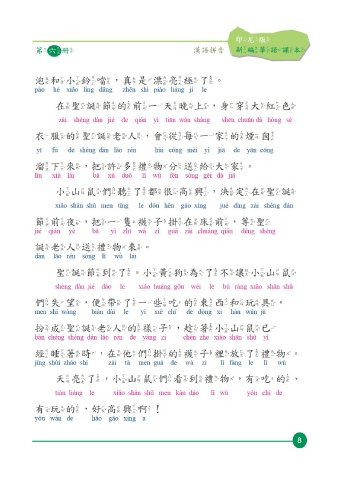 印尼版
第六冊 漢語拼音 新編華語課本
泡和小鈴噹，真是漂亮極了。
pào hé xiǎo líng dāng zhēn shì piào liàng jí le
在聖誕節的前一天晚上，身穿大紅色
zài shèng dàn jié de qián yì tiān wǎn shàng shēn chuān dà hóng sè
衣服的聖誕老人，會從每一家的煙囪
yī fú de shèng dàn lǎo rén huì cóng měi yì jiā de yān cōng
溜下來，把許多禮物分送給大家。
liū xià lái bǎ xǔ duō lǐ wù fēn sòng gěi dà jiā
小山鼠們聽了都很高興，決定在聖誕
xiǎo shān shǔ men tīng le dōu hěn gāo xìng jué dìng zài shèng dàn
節前夜，把一隻襪子掛在床前，等聖
jié qián yè bǎ yì zhī wà zi guà zài chuáng qián děng shèng
誕老人送禮物來。
dàn lǎo rén sòng lǐ wù lái
聖誕節到了。小黃狗為了不讓小山鼠
shèng dàn jié dào le xiǎo huáng gǒu wèi le bú ràng xiǎo shān shǔ
們失望，便帶了一些吃的東西和玩具，
men shī wàng biàn dài le yì xiē chī de dōng xi hàn wán jù
扮成聖誕老人的樣子，趁著小山鼠已
bàn chéng shèng dàn lǎo rén de yàng zi chèn zhe xiǎo shān shǔ yǐ
經睡著時，在他們掛的襪子裡放了禮物。
jīng shuì zháo shí zài tā men guà de wà zi lǐ fàng le lǐ wù
天亮了，小山鼠們看到禮物，有吃的、
tiān liàng le xiǎo shān shǔ men kàn dào lǐ wù yǒu chī de
有玩的，好高興啊！
yǒu wán de hǎo gāo xìng a
8